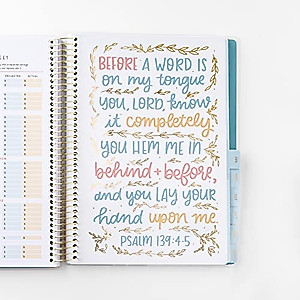 BEFORE A WORD, IS
on my tongue
you, LORD, know
it completely
YOU HEM ME IN
behind + before,
and you LAY YOUR
hand upon me.
PSALM 139:4-5